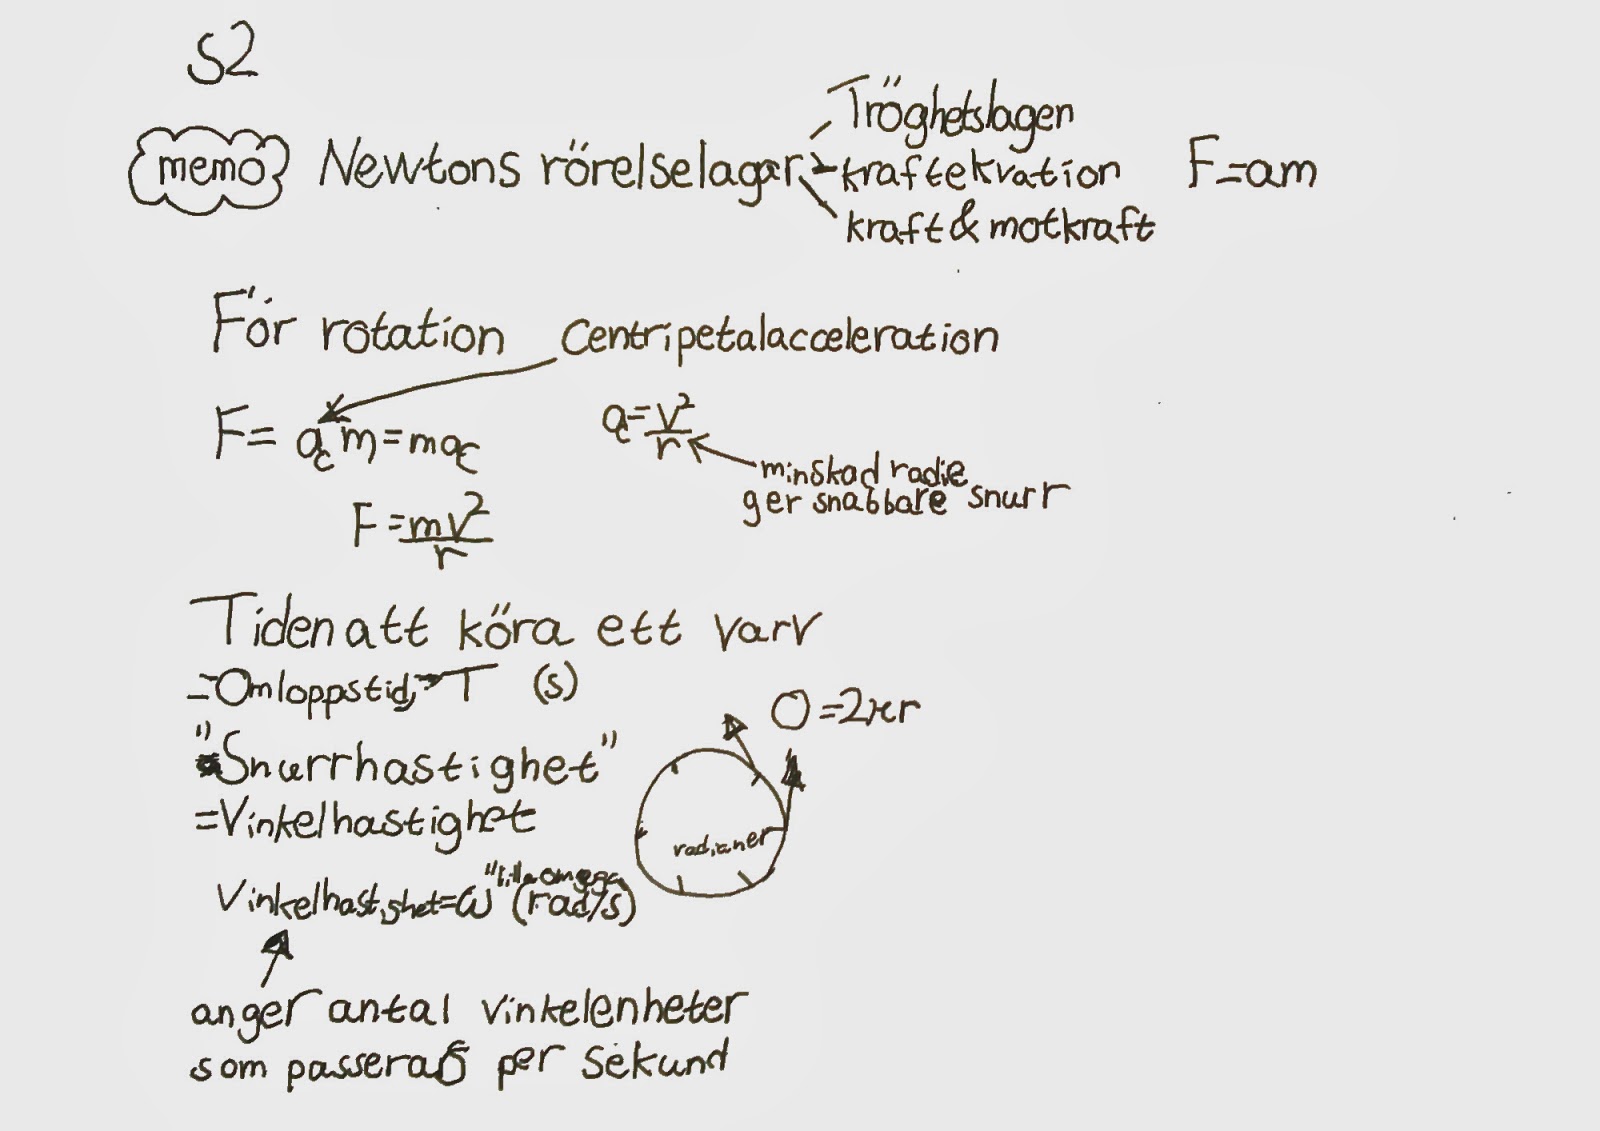 S2
memo Newtons rörelselagar
Tröghetslagen
kraftekvation F=am
kraft & motkraft
För rotation Centripetalacceleration
F= a_c m = ma_c
a_c = v²/r
minskad radie
ger snabbare snurr
F = mv²/r
Tiden att köra ett varv
=Omloppstid, T (s)
O =2πr
"Snurrhastighet"
=Vinkelhastighet
radianer
"lilla omega
Vinkelhastighet=ω (rad/s)
anger antal vinkelenheter
som passeras per sekund